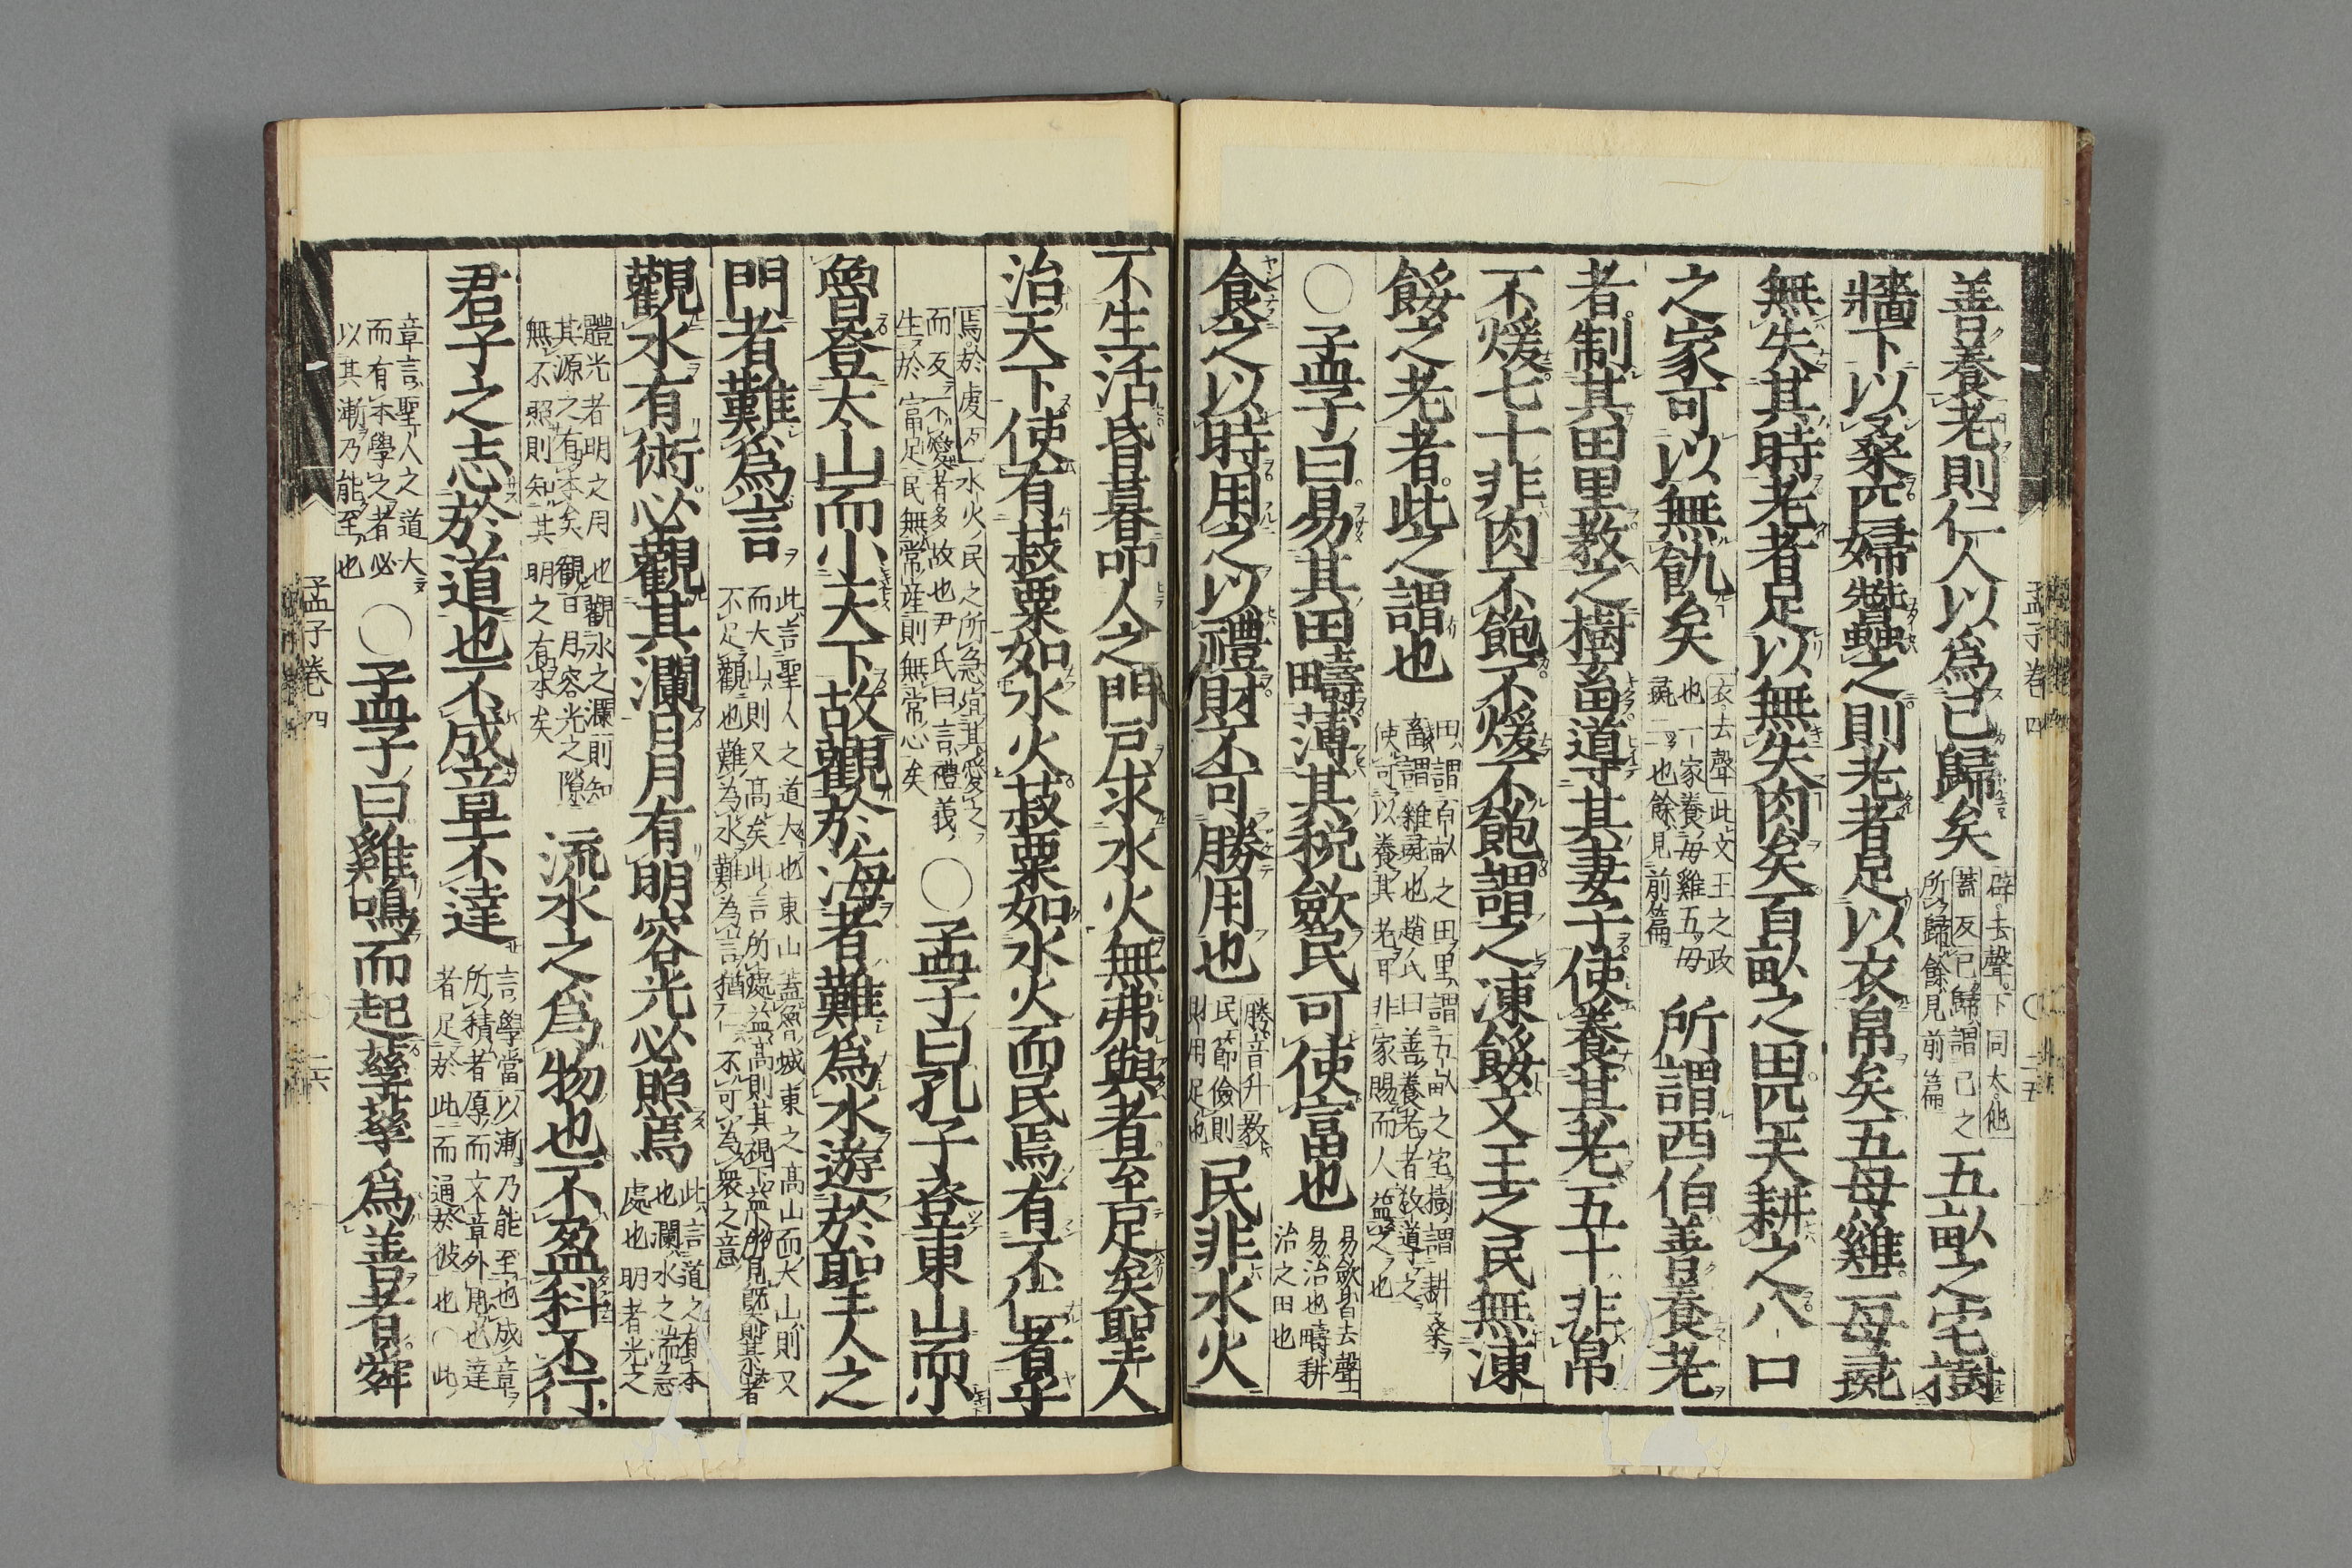 善養老則仁人以爲己歸矣辟去聲下同大他
蓋反○己歸謂己之
所歸餘見前篇五畝之宅樹
牆下以桑匹婦蠶之則老者足以衣帛矣五母雞二母彘
無失其時老者足以無失肉矣百畝之田匹夫耕之八口
之家可以無飢矣衣去聲○此文王之政
也一家養母雞五母
彘二也餘見前篇所謂西伯善養老
者制其田里教之樹畜導其妻子使養其老五十非帛
不煖七十非肉不飽不煖不飽謂之凍餒文王之民無凍
餒之老者此之謂也田謂百畝之田里謂五畝之宅樹謂耕桑
畜謂雞彘也趙氏曰善養老者教導之
使可以養其老耳非家賜而人益之也
○孟子曰易其田疇薄其稅斂民可使富也易斂皆去聲
易治也疇耕
治之田也
食之以時用之以禮財不可勝用也勝音升教
民節儉則
財用足也民非水火
不生活昏暮叩人之門戶求水火無弗與者至足矣聖人
治天下使有菽粟如水火菽粟如水火而民焉有不仁者乎
焉於虔反水火民之所急宜其愛之
而反不愛者多故也尹氏曰言禮義
生於富足民無常產則無常心矣○孟子曰孔子登東山而小
魯登太山而小天下故觀於海者難爲水遊於聖人之
門者難爲言此言聖人之道大也東山蓋魯城東之高山而大山則又
高矣此言所處益高則其視下益小所見旣大則其小者
不足觀也難為水難為言猶仁不可為衆之意
觀水有術必觀其瀾日月有明容光必照焉此言道之有本
也瀾水之湍急
處也明者光之
體光者明之用也觀水之瀾則知
其源之有本矣觀日月容光之隙
無不照則知其明之有本矣流水之爲物也不盈科不行
君子之志於道也不成章不達言學當以漸乃能至也成章
所積者厚而文章外見也達
者足於此而通於彼也○此
章言聖人之道大
而有本學之者必
以其漸乃能至也○孟子曰雞鳴而起孳孳爲善者舜
孟子卷四
二五
孟子卷四
二六